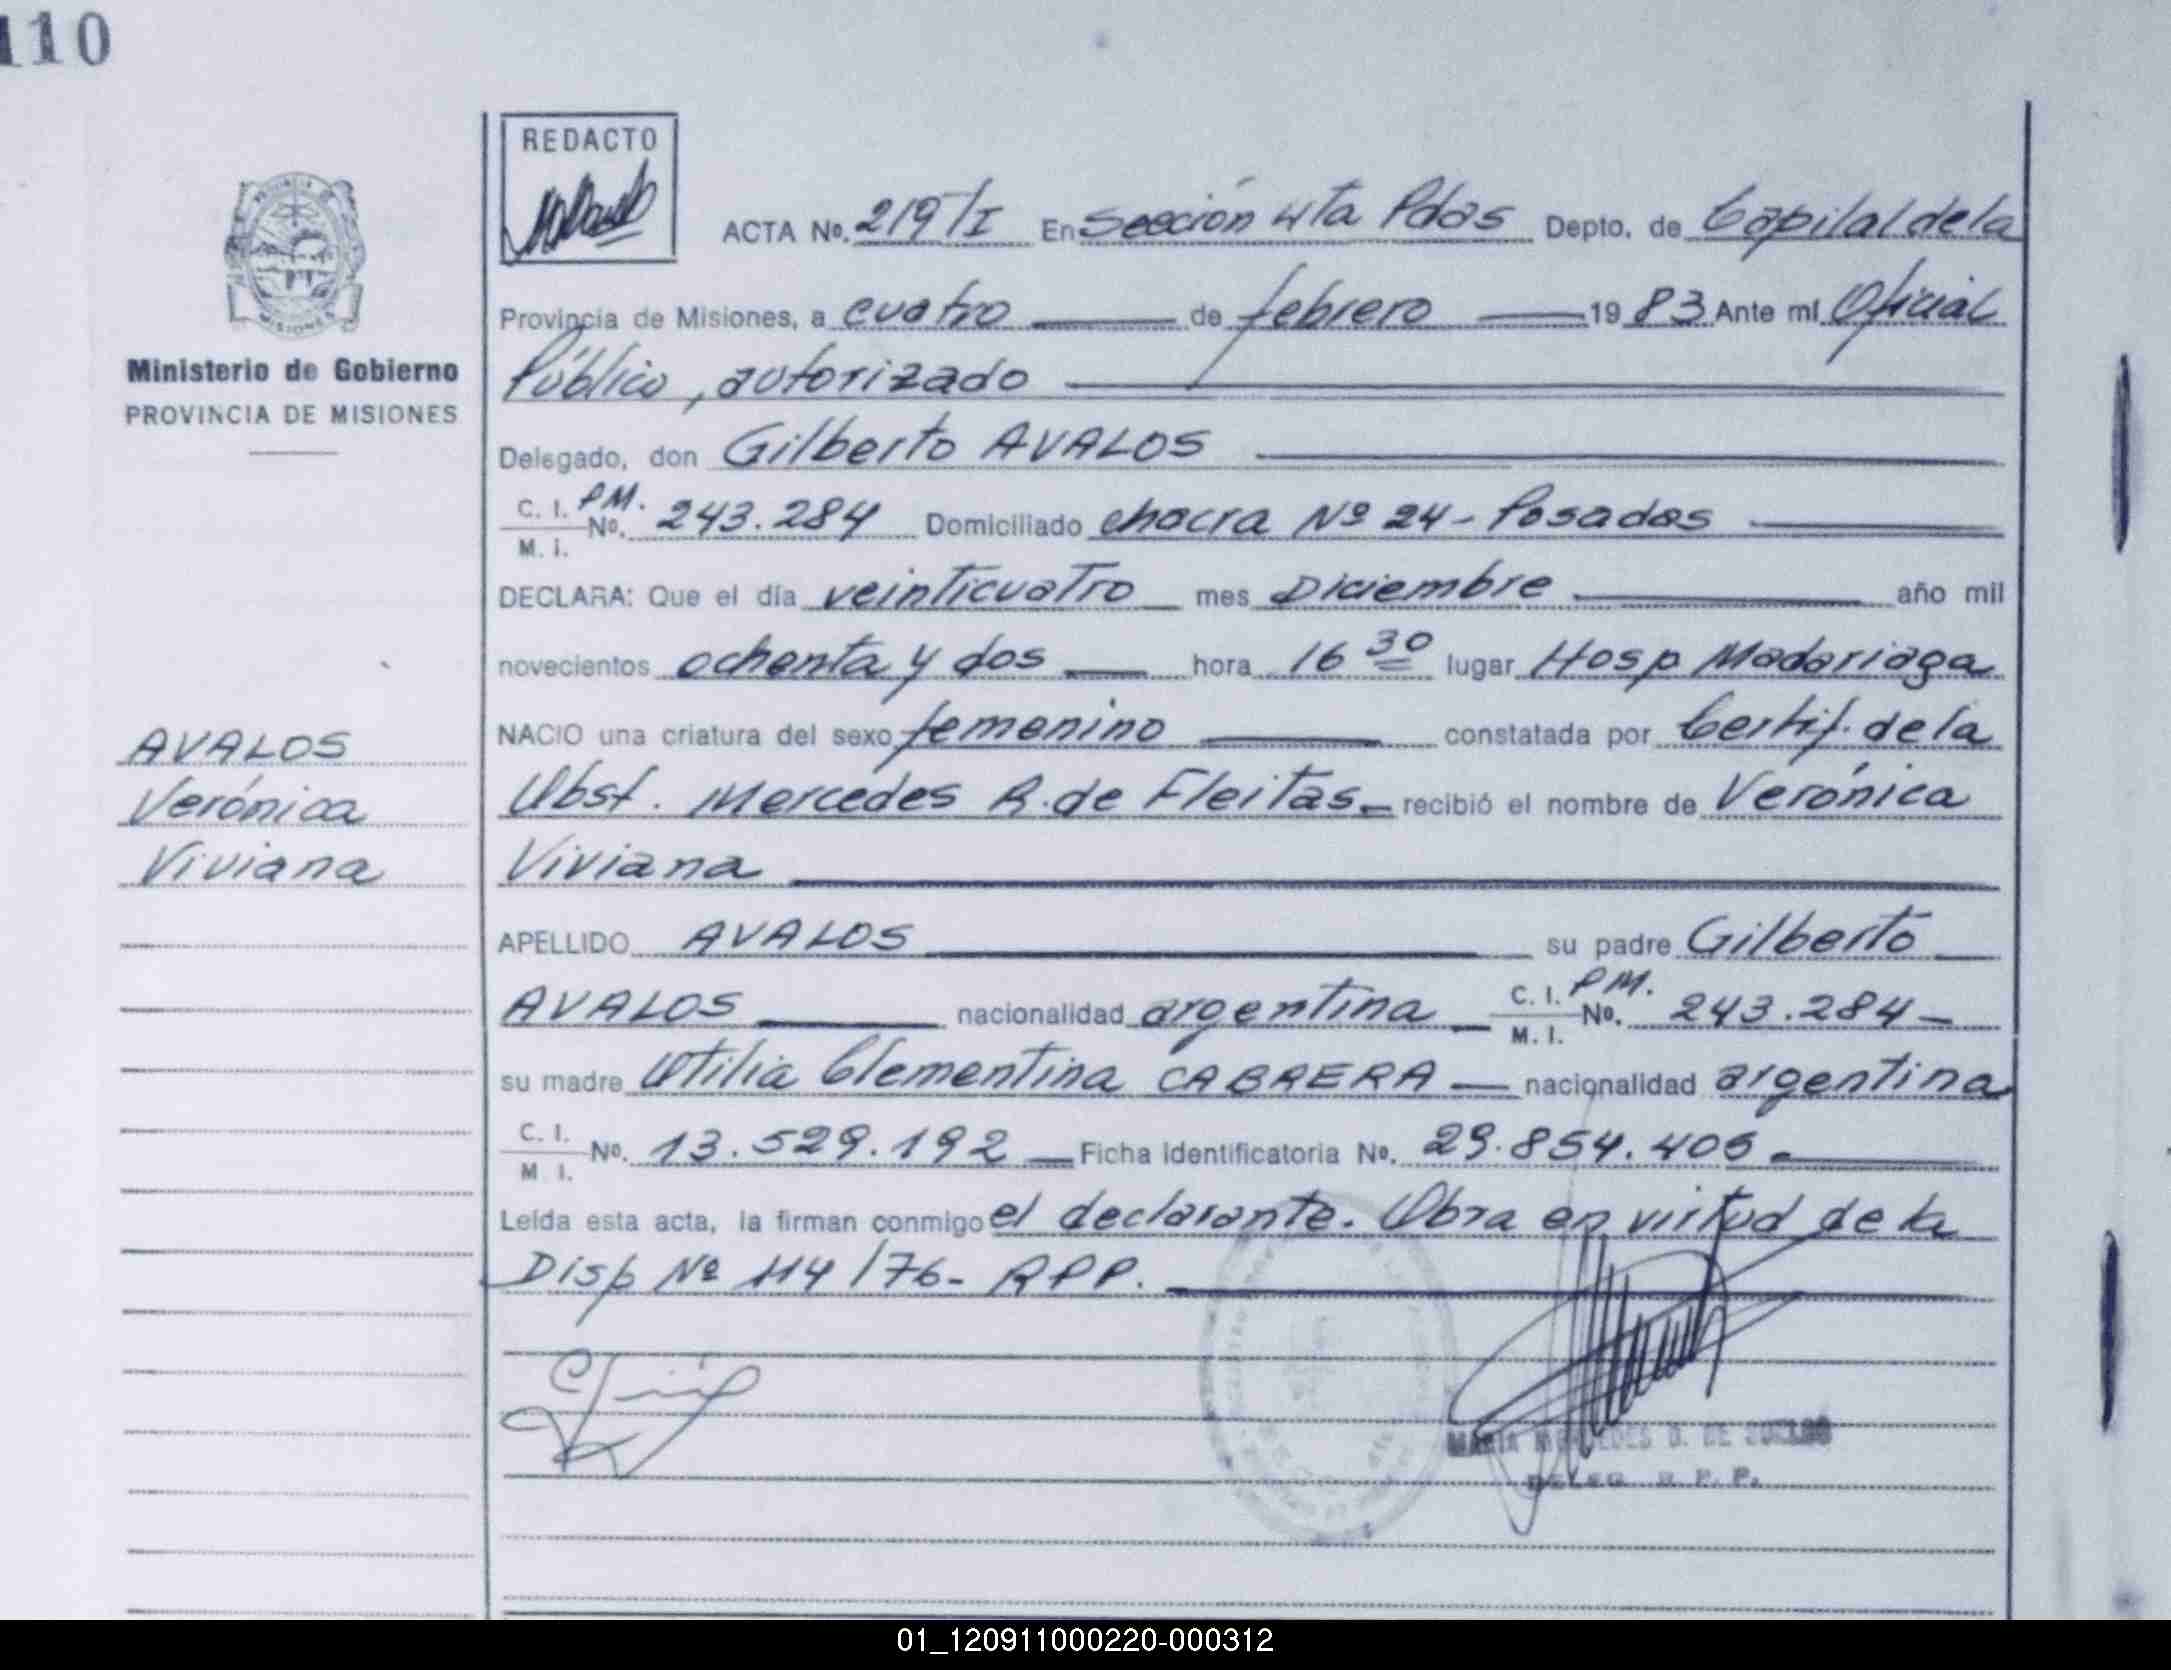 110
REDACTO
ACTA No. 219/I En Sección 4ta Pdas Depto. de Capital de la
Provincia de Misiones, a cuatro de febrero 1983 Ante mi Oficial
Público, autorizado
Ministerio de Gobierno
PROVINCIA DE MISIONES
Delegado, don Gilberto AVALOS
C. I. PM.
M. I. No. 243.284 Domiciliado chacra Nº 24 - Posadas
DECLARA: Que el día veinticuatro mes Diciembre año mil
novecientos ochenta y dos hora 16 30 lugar Hosp Madariaga
NACIO una criatura del sexo femenino constatada por Certif. de la
Obst. Mercedes R. de Fleitas - recibió el nombre de Verónica
Viviana
AVALOS
Verónica
Viviana
APELLIDO AVALOS su padre Gilberto
AVALOS nacionalidad argentina C. I. PM. M. I. No. 243.284 -
su madre Otilia Clementina CABRERA - nacionalidad argentina
C. I. M. I. No. 13.529.192 - Ficha Identificatoria No. 29.854.405 -
Leída esta acta, la firman conmigo el declarante. Obra en virtud de la
Disp Nº 114/76 - RPP.
MARIA MERCEDES D. DE
DELEG. R. P. P.
01_120911000220-000312